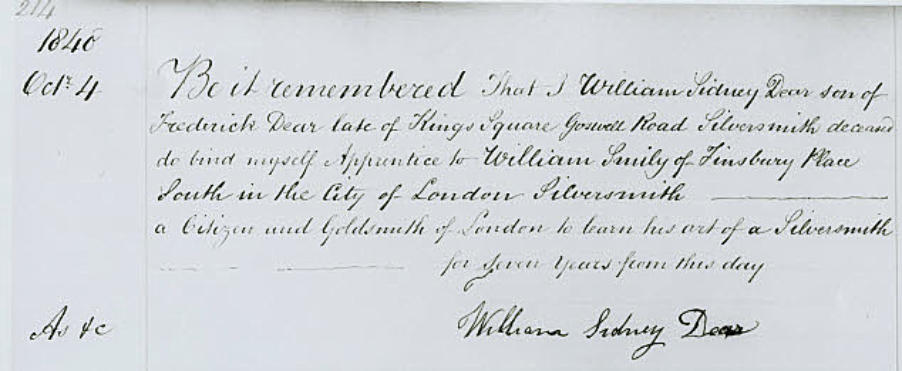 214
1848
Octr 4
Be it remembered That I William Sidney Dear son of
Frederick Dear late of Kings Square Goswell Road Silversmith deceased
do bind myself Apprentice to William Smily of Finsbury Place
South in the City of London Silversmith
a Citizen and Goldsmith of London to learn his art of a Silversmith
for Seven Years from this day
As &c
William Sidney Dear